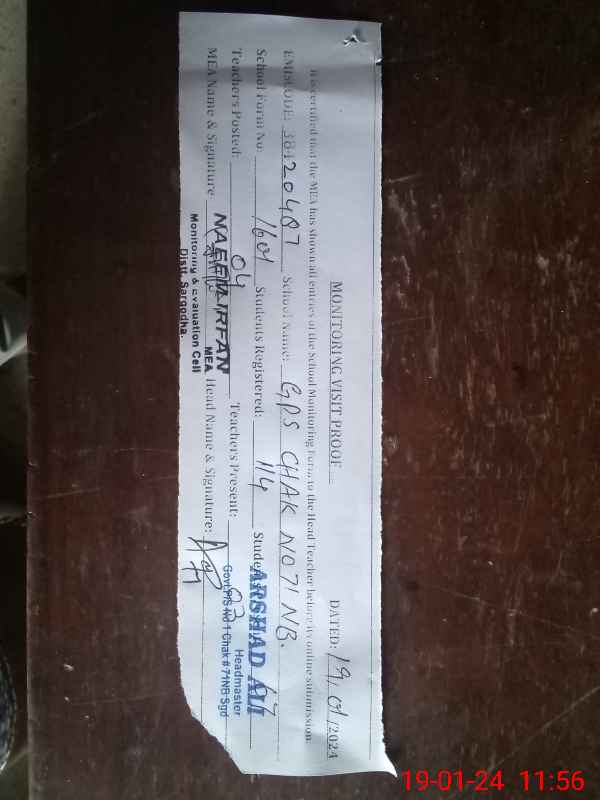 MONITORING VISIT PROOF
DATED: 19/01/2024
It is certified that the MEA has shown all entries of the School Monitoring Form to the Head Teacher before its online submission.
EMISCODE: 38120487 School Name: GPS CHAK NO 71 NB.
School Form No: 1601 Students Registered: 114 Students
Teachers Posted: 04 Teachers Present: 03
MEA Name & Signature NAEEM IRFAN Head Name & Signature:
MEA
Monitoring & Evaluation Cell
Distt. Sargodha.
ARSHAD ALI
Headmaster
Govt. P/S No 1 Chak # 71NB Sgd
19-01-24 11:56